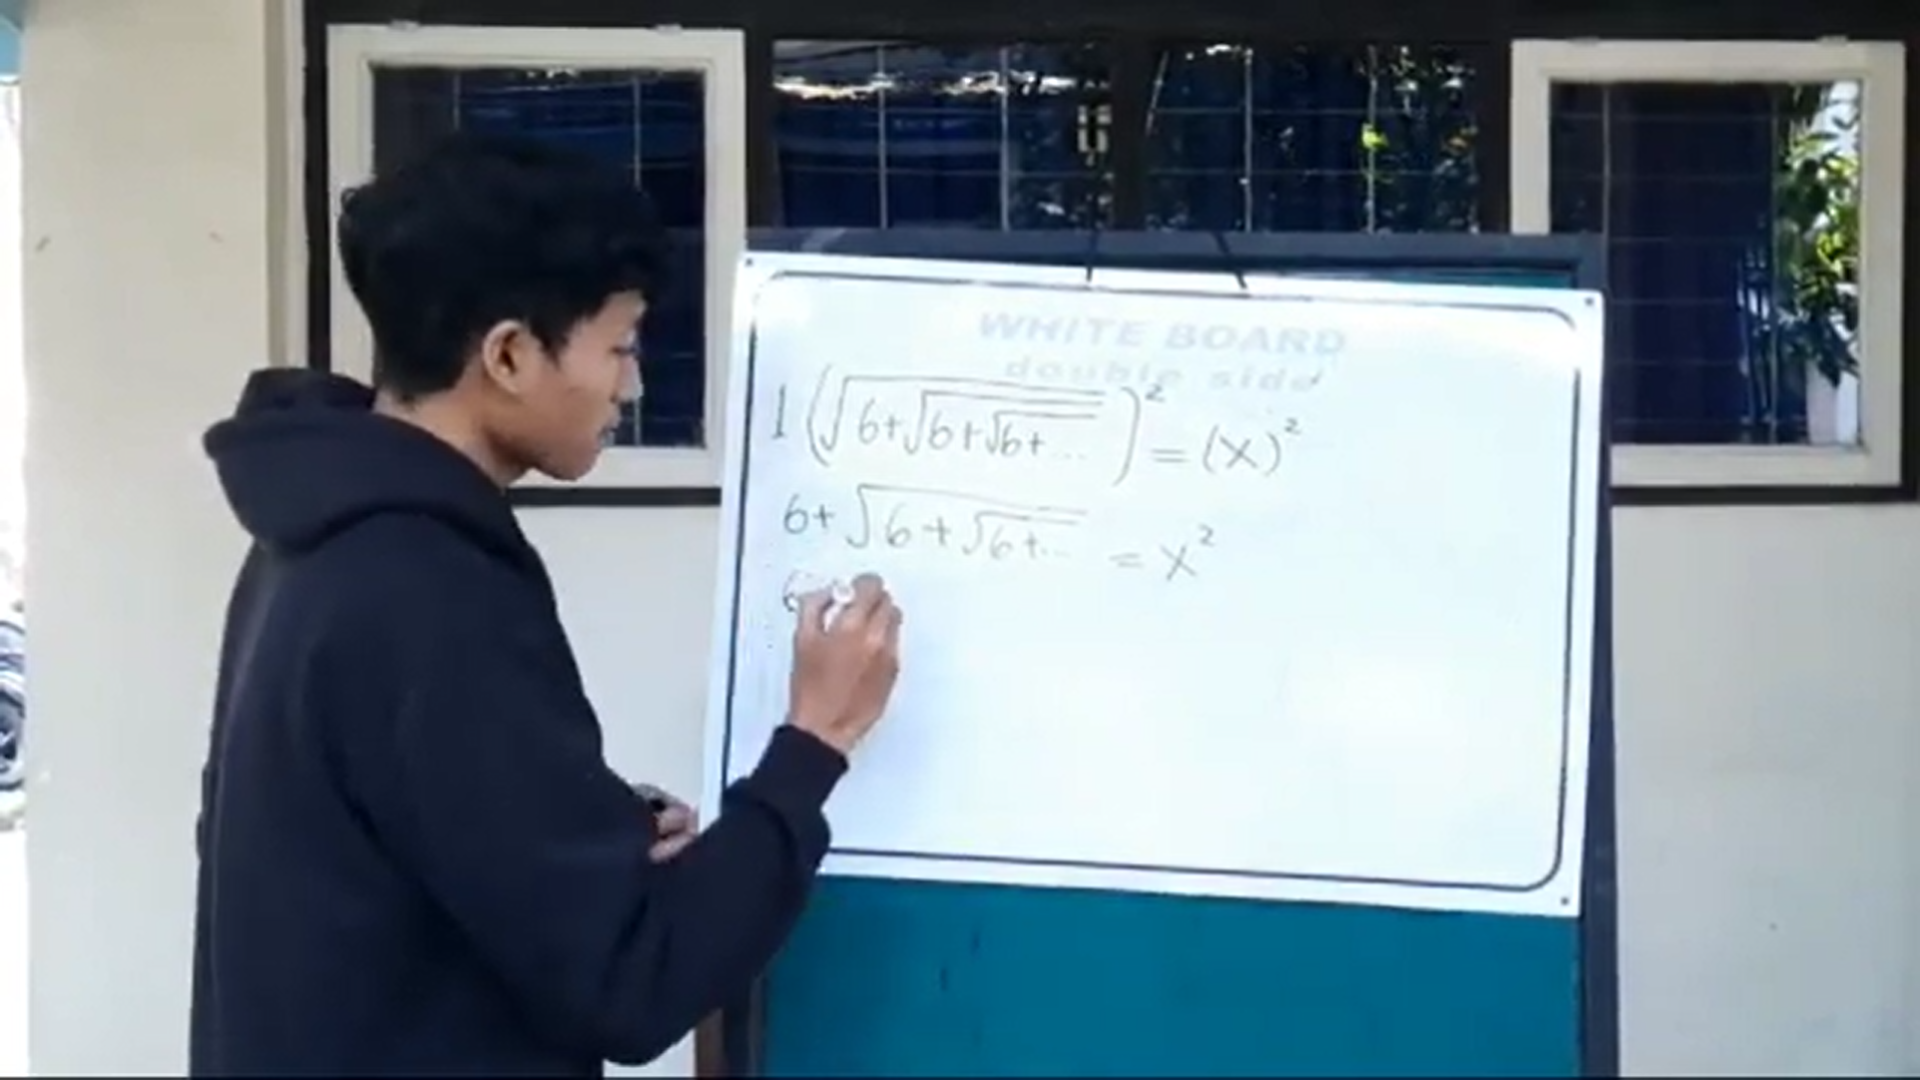 WHITE BOARD
double side
1 (√6+√6+√6+...)² = (x)²
6+√6+√6+... = x²
6